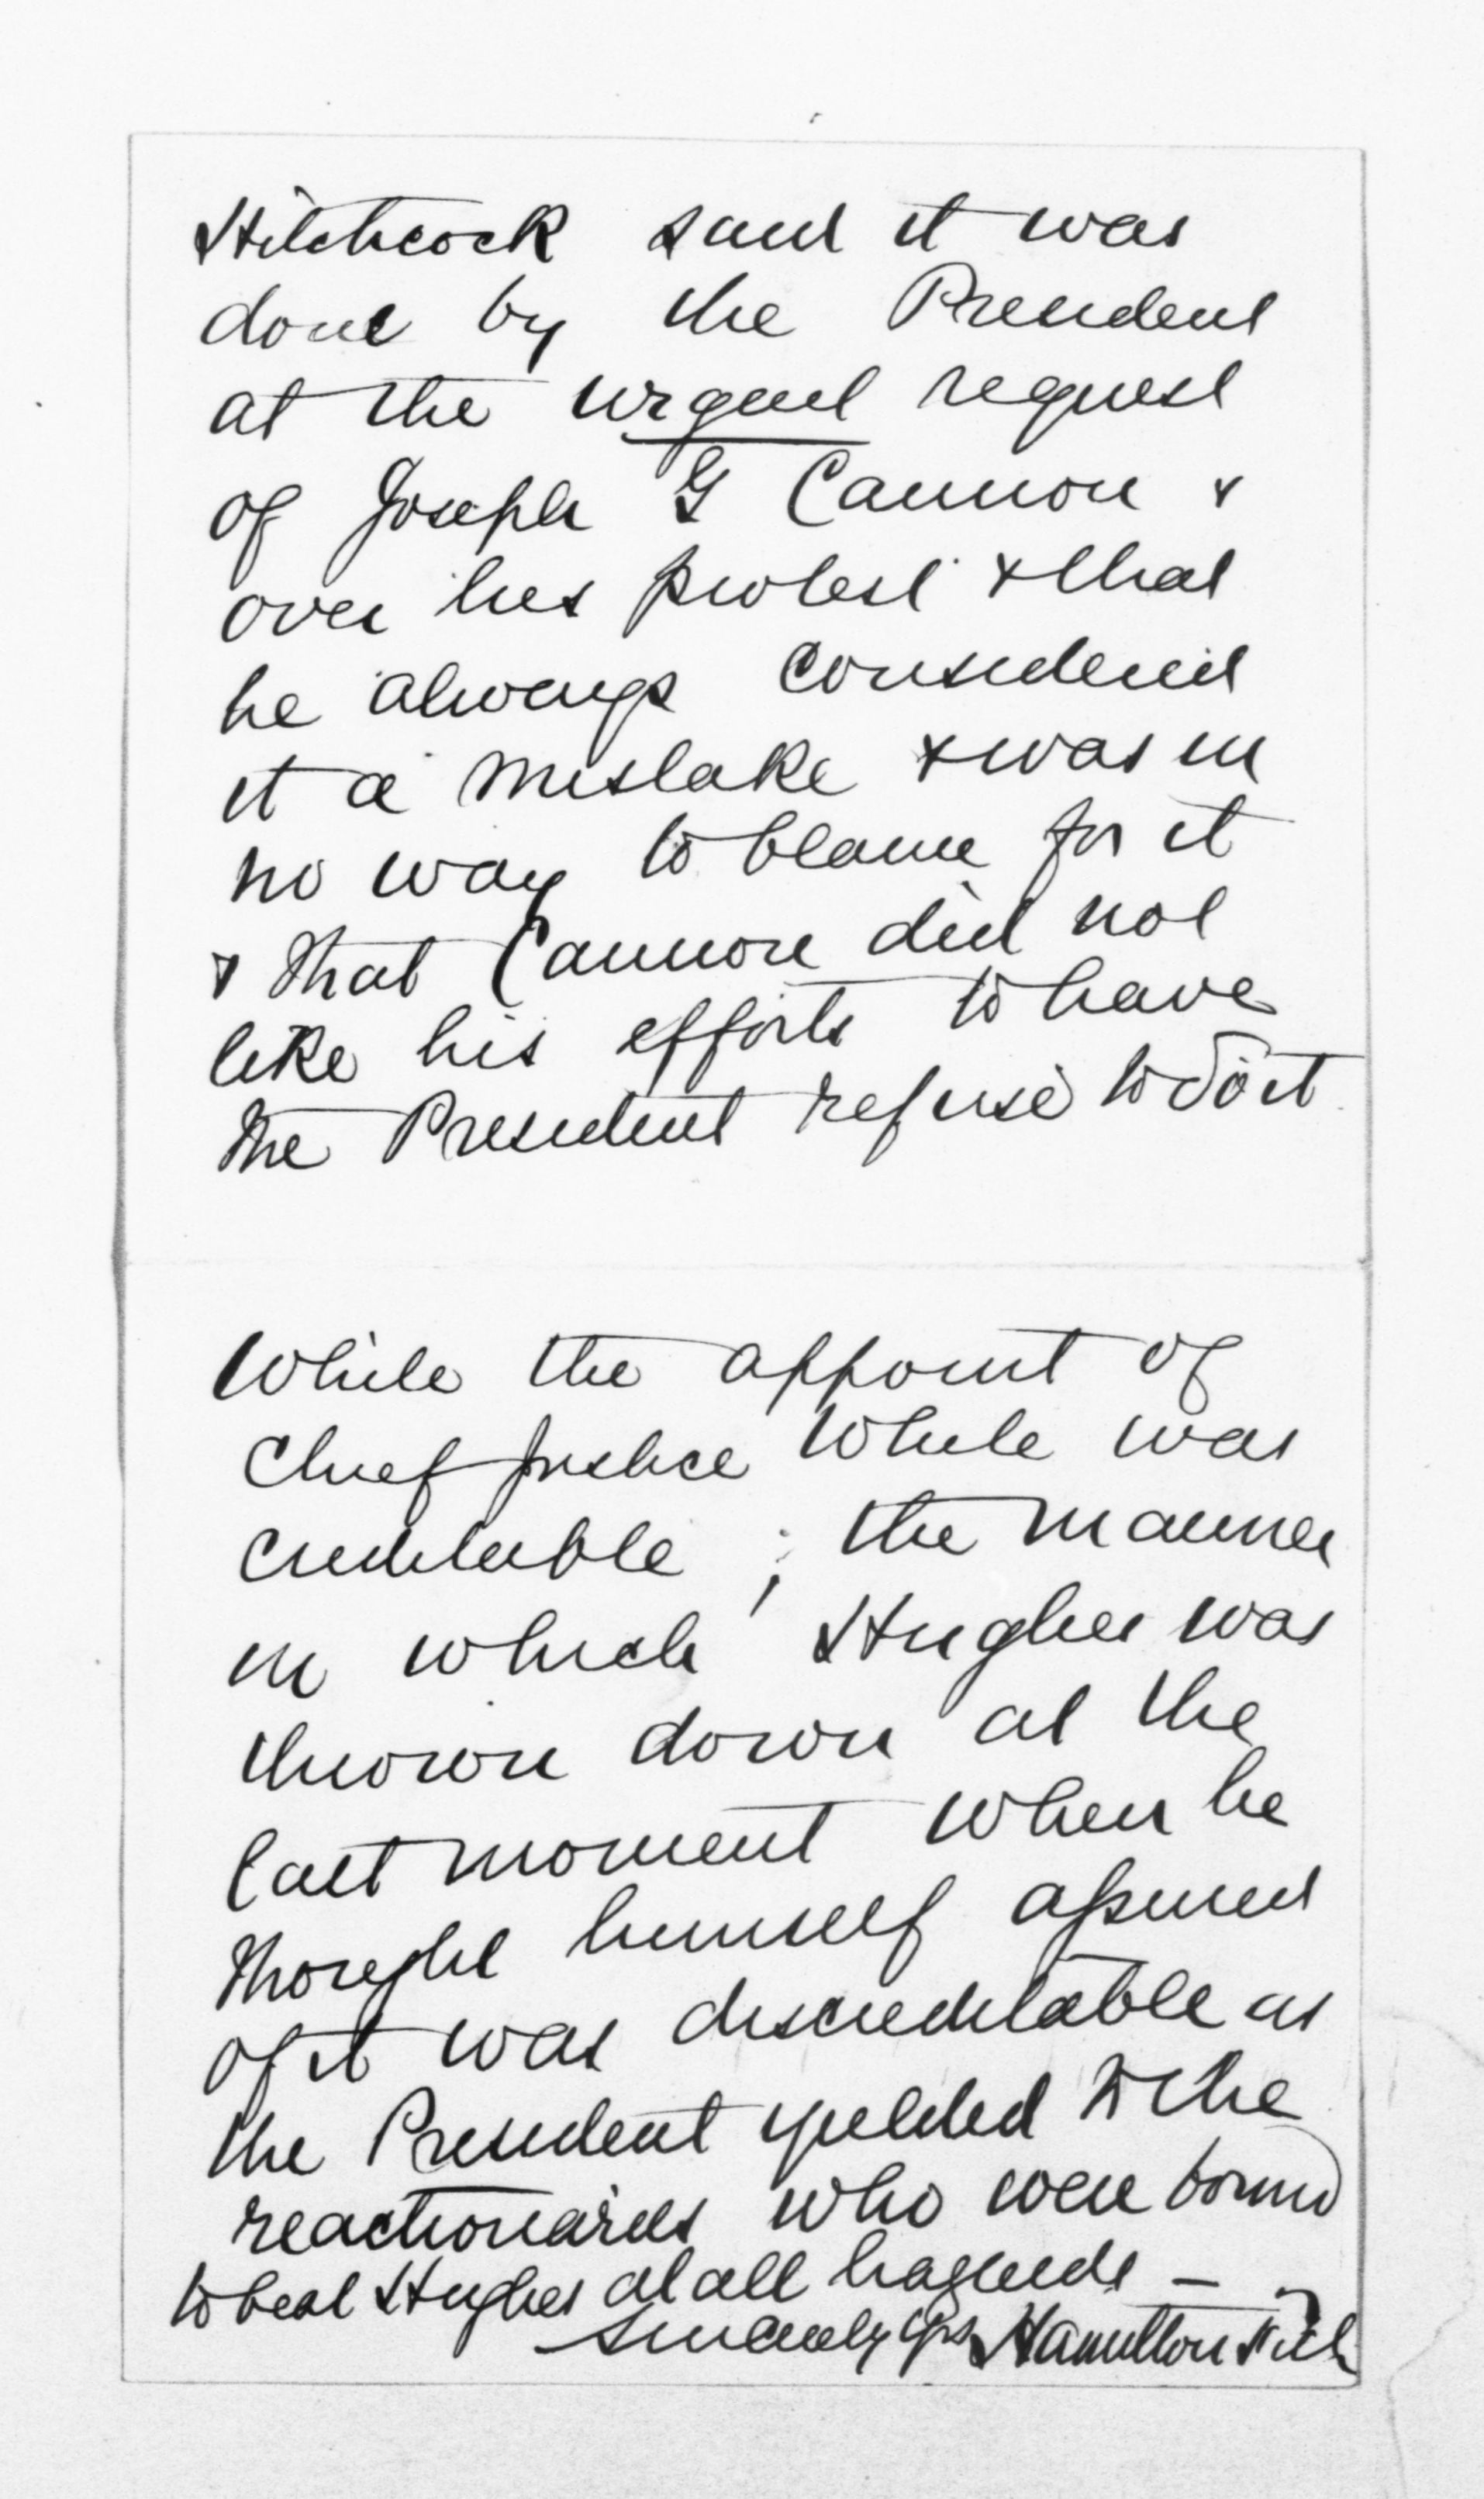 Hitchcock said it was
done by the President
at the urgent request
of Joseph G Cannon &
over his protest & that
he always considered
it a mistake & was in
no way to blame for it
& that Cannon did not
like his efforts to have
the President refuse to do it
While the appoint of
Chief Justice White was
creditable ; the manner
in which Hughes was
thrown down at the
last moment when he
thought himself assured
of it was discreditable as
the President yielded to the
reactionaries who were bound
to beat Hughes at all hazards —
Sincerely yrs Hamilton Fish